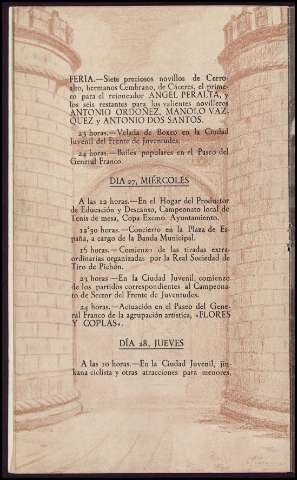 FERIA.—Siete preciosos novillos de Cerro-
alto, hermanos Cembrano, de Cáceres, el prime-
ro para el rejoneador ANGEL PERALTA, y
los seis restantes para los valientes novilleros
ANTONIO ORDOÑEZ, MANOLO VAZ-
QUEZ y ANTONIO DOS SANTOS.
23 horas.—Velada de Boxeo en la Ciudad
Juvenil del Frente de Juventudes.
24 horas.—Bailes populares en el Paseo del
General Franco.
DIA 27, MIÉRCOLES
A las 12 horas.—En el Hogar del Productor
de Educación y Descanso, Campeonato local de
Tenis de mesa, Copa Excmo. Ayuntamiento.
12'30 horas.—Concierto en la Plaza de Es-
paña, a cargo de la Banda Municipal.
15 horas.—Comienzo de las tiradas extra-
ordinarias organizadas por la Real Sociedad de
Tiro de Pichón.
23 horas—En la Ciudad Juvenil, comienzo
de los partidos correspondientes al Campeona-
to de Sector del Frente de Juventudes.
24 horas.—Actuación en el Paseo del Gene-
ral Franco de la agrupación artística, «FLORES
Y COPLAS».
DÍA 28, JUEVES
A las 10 horas.—En la Ciudad Juvenil, jin-
kana ciclista y otras atracciones para menores.